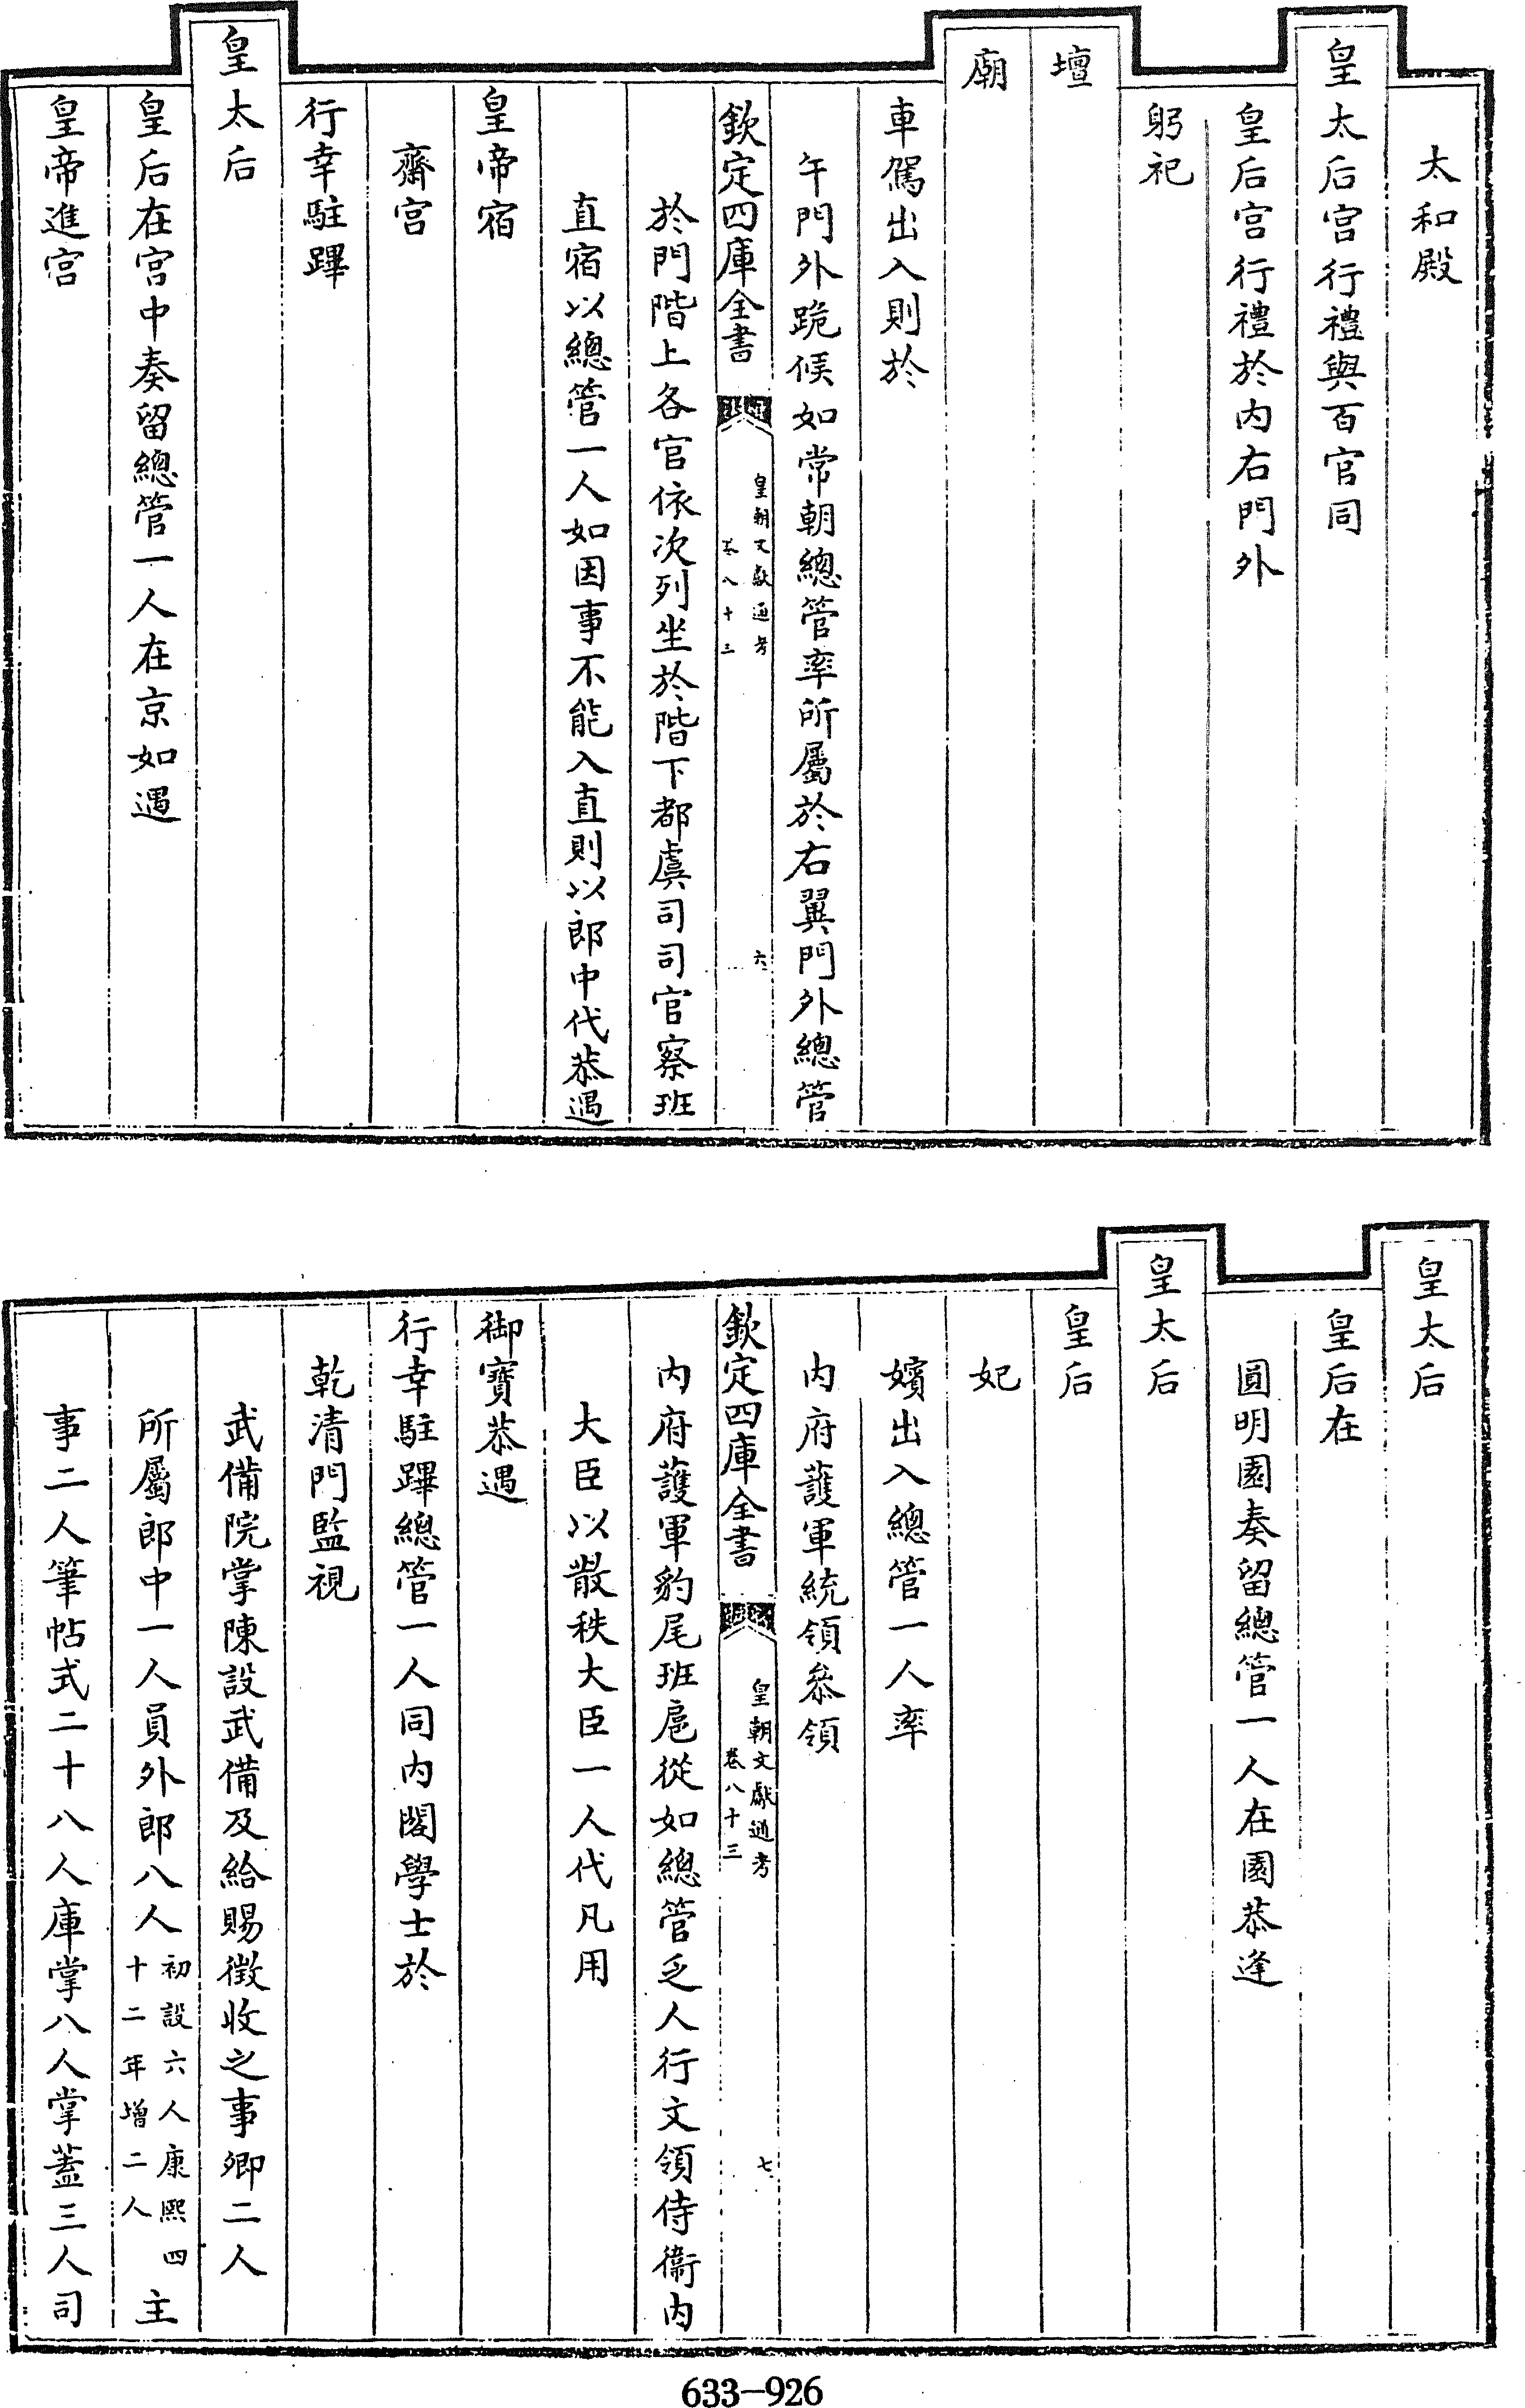 太和殿
皇太后宫行禮與百官同
皇后宫行禮於内右門外
躬祀
壇
廟
車駕出入則於
午門外跪候如常朝總管率所屬於右翼門外總管
欽定四庫全書
皇朝文獻通考
卷八十三
六
於門階上各官依次列坐於階下都虞司司官察班
直宿以總管一人如因事不能入直則以郎中代恭遇
皇帝宿
齋宫
行幸駐蹕
皇太后
皇后在宫中奏留總管一人在京如遇
皇帝進宫
皇太后
皇后在
圓明園奏留總管一人在園恭逢
皇太后
皇后
妃
嬪出入總管一人率
内府護軍統領叅領
欽定四庫全書
皇朝文獻通考
卷八十三
七
内府護軍豹尾班扈從如總管乏人行文領侍衞内
大臣以散秩大臣一人代凡用
御寶恭遇
行幸駐蹕總管一人同内閣學士於
乾清門監視
武備院掌陳設武備及給賜徴收之事卿二人
所屬郎中一人員外郎八人初設六人康熙四十二年增二人主
事二人筆帖式二十八人庫掌八人掌蓋三人司
633-926